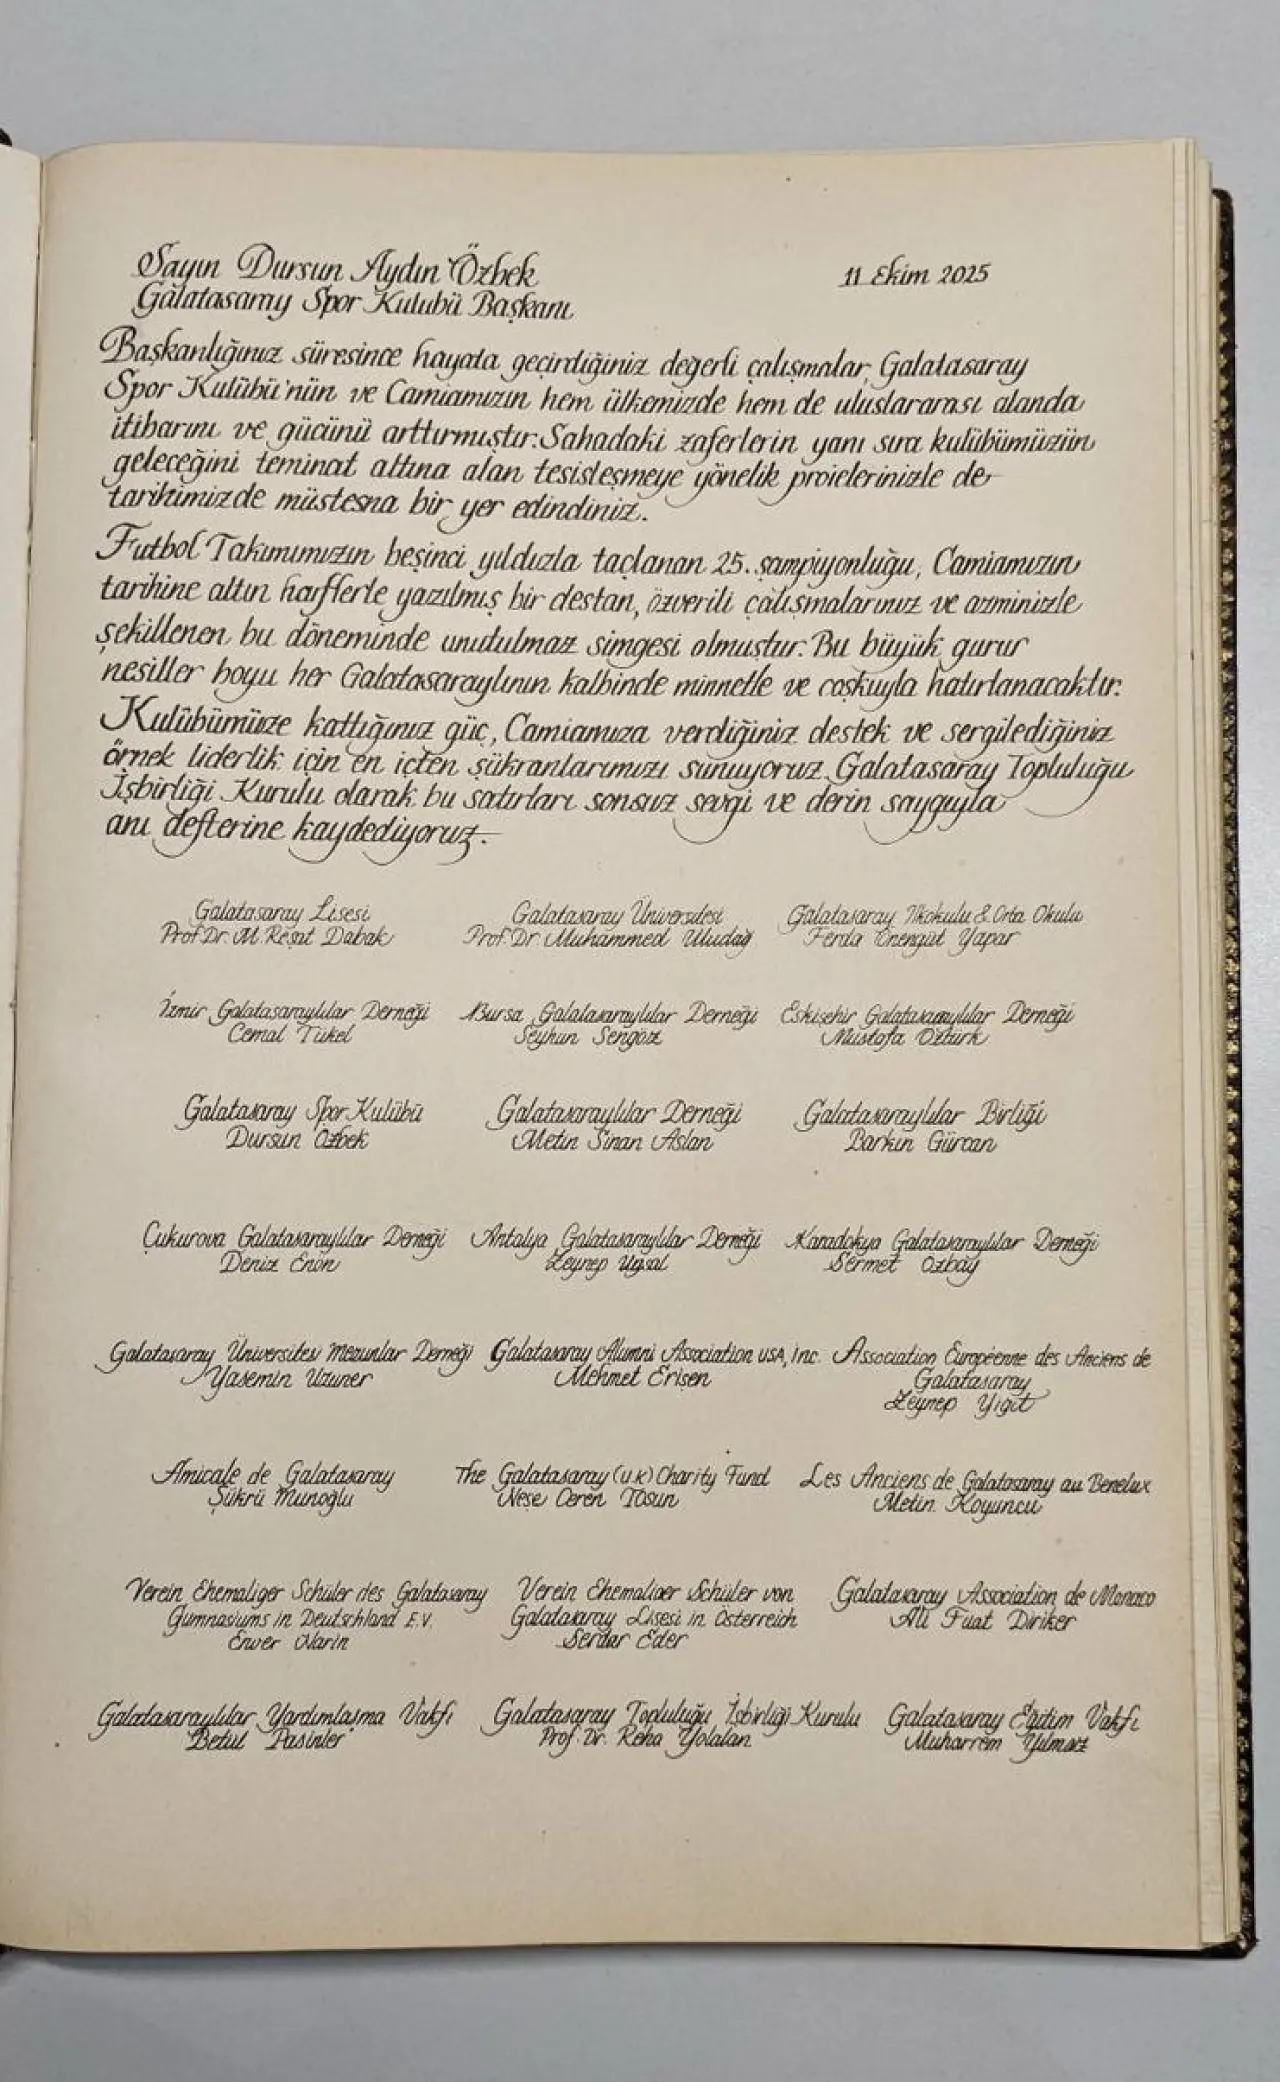 Sayın Dursun Aydın Özbek
11 Ekim 2025
Galatasaray Spor Kulübü Başkanı
Başkanlığınız süresince hayata geçirdiğiniz değerli çalışmalar, Galatasaray
Spor Kulübü'nün ve Camiamızın hem ülkemizde hem de uluslararası alanda
itibarını ve gücünü arttırmıştır. Sahadaki zaferlerin yanı sıra kulübümüzün
geleceğini teminat altına alan tesisleşmeye yönelik projelerinizle de
tarihimizde müstesna bir yer edindiniz.
Futbol Takımımızın beşinci yıldızla taçlanan 25. şampiyonluğu, Camiamızın
tarihine altın harflerle yazılmış bir destan, özverili çalışmalarınız ve azminizle
şekillenen bu döneminde unutulmaz simgesi olmuştur. Bu büyük gurur
nesiller boyu her Galatasaraylının kalbinde minnetle ve coşkuyla hatırlanacaktır.
Kulübümüze kattığınız güç, Camiamıza verdiğiniz destek ve sergilediğiniz
örnek liderlik için en içten şükranlarımızı sunuyoruz. Galatasaray Topluluğu
İşbirliği Kurulu olarak bu satırları sonsuz sevgi ve derin saygıyla
anı defterine kaydediyoruz.
Galatasaray Lisesi
Prof. Dr. M. Reşat Dabak
Galatasaray Üniversitesi
Prof. Dr. Muhammed Uludağ
Galatasaray İlkokulu & Orta Okulu
Ferda Önengüt Yapar
İzmir Galatasaraylılar Derneği
Cemal Tükel
Bursa Galatasaraylılar Derneği
Seyhun Sengöz
Eskişehir Galatasaraylılar Derneği
Mustafa Öztürk
Galatasaray Spor Kulübü
Dursun Özbek
Galatasaraylılar Derneği
Metin Sinan Aslan
Galatasaraylılar Birliği
Barkın Gürcan
Çukurova Galatasaraylılar Derneği
Deniz Enön
Antalya Galatasaraylılar Derneği
Zeynep Uysal
Kapadokya Galatasaraylılar Derneği
Sermet Özbay
Galatasaray Üniversitesi Mezunlar Derneği
Yasemin Uzuner
Galatasaray Alumni Association USA, Inc.
Mehmet Erişen
Association Européenne des Anciens de
Galatasaray
Zeynep Yiğit
Amicale de Galatasaray
Şükrü Munoğlu
The Galatasaray (U.K) Charity Fund
Neşe Ceren Tosun
Les Anciens de Galatasaray au Benelux
Metin Koyuncu
Verein Ehemaliger Schüler des Galatasaray
Gumnasiums in Deutschland E.V.
Enver Narin
Verein Ehemaliger Schüler von
Galatasaray Lisesi in Österreich
Serdar Eder
Galatasaray Association de Monaco
Ali Fuat Diriker
Galatasaraylılar Yardımlaşma Vakfı
Betul Pasinler
Galatasaray Topluluğu İşbirliği Kurulu
Prof. Dr. Reha Yolalan
Galatasaray Eğitim Vakfı
Muharrem Yılmaz